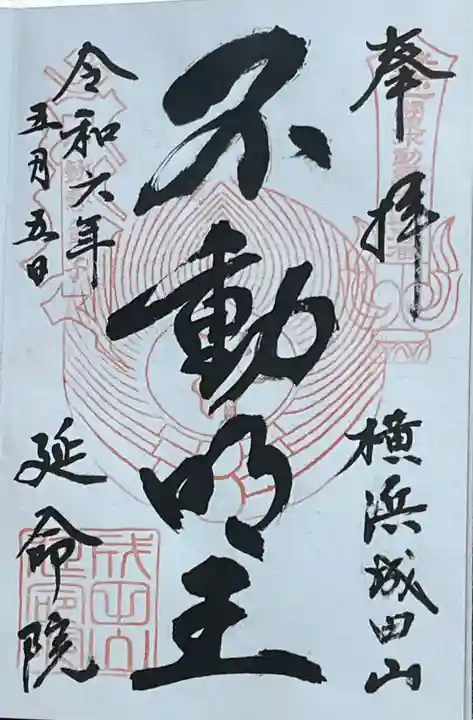 奉拝
横浜城田山
不動明王
令和六年
五月五日
延命院